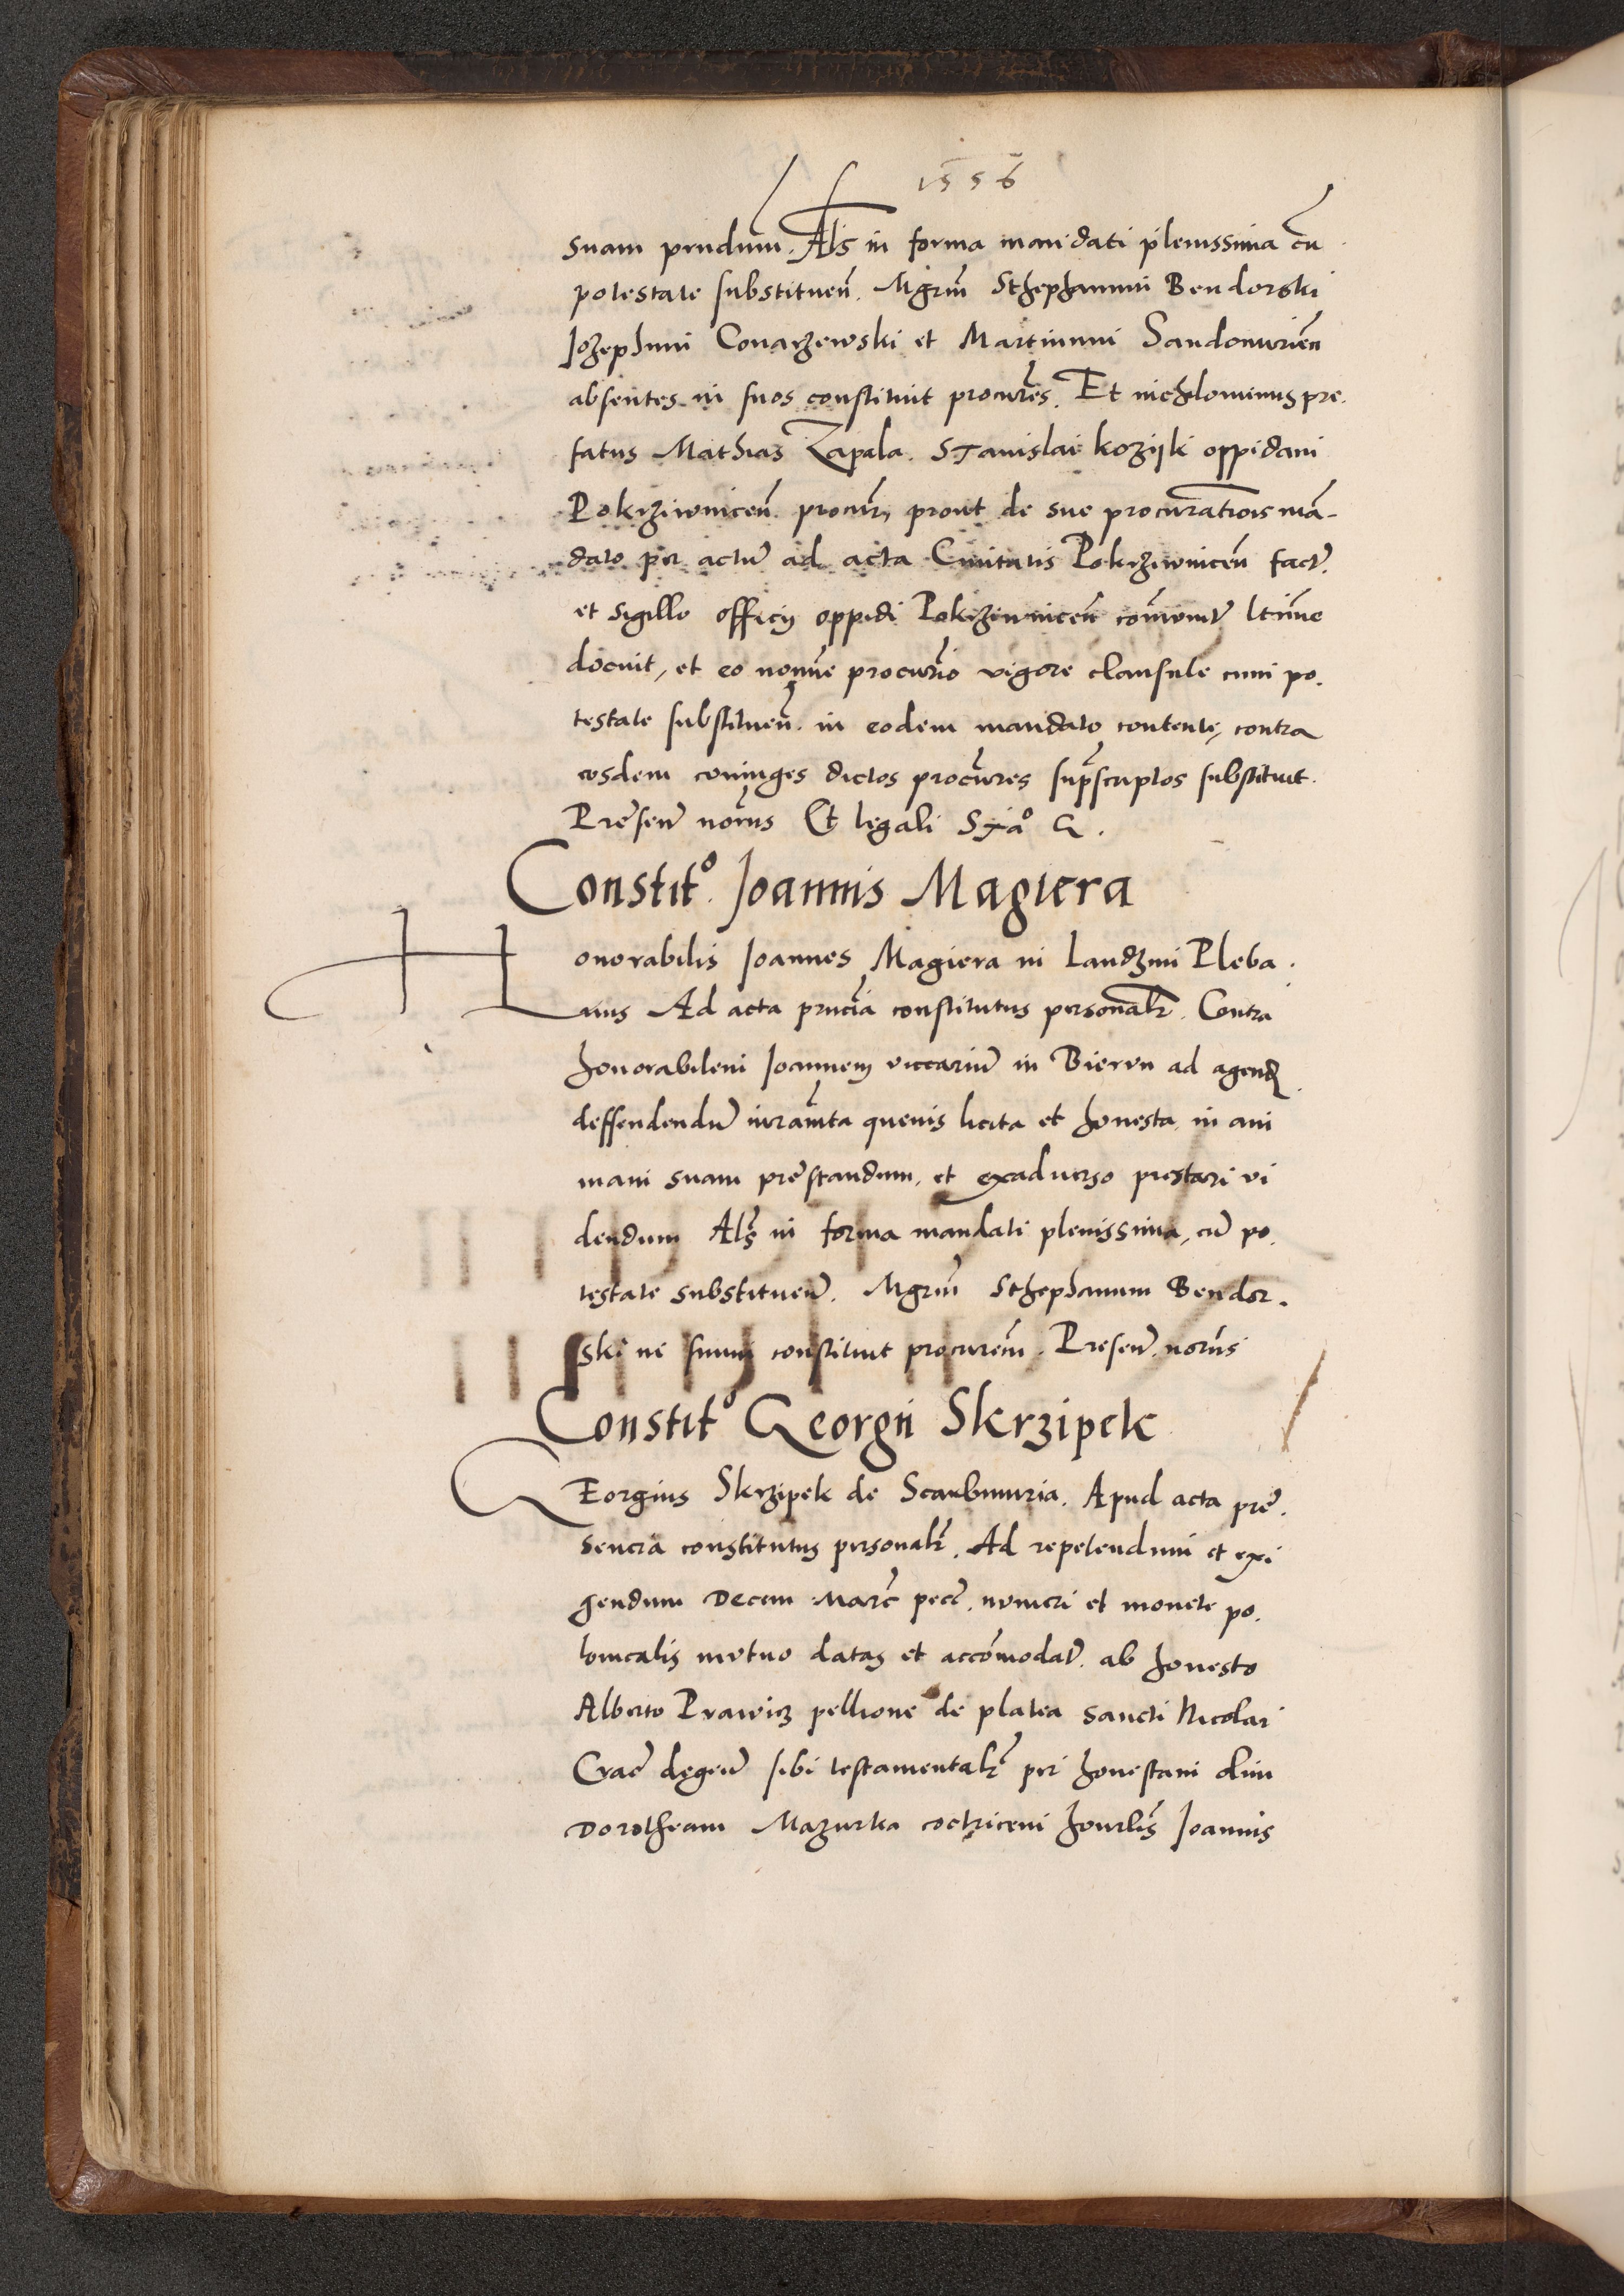 1556
suam prndum. Als in forma mandati plenissima cu
potestate substituen. Mgrm Sthephanum Bendorski
Jozephum Conarzewski et Martinum Sandomirien
absentes in suos constituit procures. Et nichilominus pre.
fatus Mathias Zapala. Stanislai kozijk oppidani
Pokrziwnicen. procur, prout de sue procurationis man-
dato per actum ad acta Civitatis Pokrziwnicen fact.
et sigillo officij oppidi Pokrziwnicen communit ltime
docuit, et eo nomine procurio vigore clausule cum po.
testate substituen. in eodem mandato contente, contra
eosdem coniuges dictos procures suprascriptos substituit.
Presen norus Et legali
Constito. Joannis Magiera
Honorabilis Joannes Magiera in Landzmi Pleba.
nus Ad acta prncia constitutus personalr. Contra
honorabilem Joannem viccarium in Bierun ad agend
deffendendum iuramta quevis licita et honesta in ani
mam suam prestandum, et exadverso prestari vi
dendum Als in forma mandati plenissima, cum po.
testate substituen. Mgrm Sthephanum Bendor.
ski in suum constituit procurem. Presen. noriis
Constito Georgii Skrzipek
Georgius Skrzipek de Scarbimiria. Apud acta pre.
sencia constitutus personalr. Ad repetendum et exi
gendum Decem Marc pecc. numeri et monete po.
lonicalis mutuo datas et accomodat. ab honesto
Alberto Prawicz pellione de platea sancti Nicolai
Crac degen sibi testamentalr per honestam olim
Dorotheam Mazurka coctricem honrlis Joannis